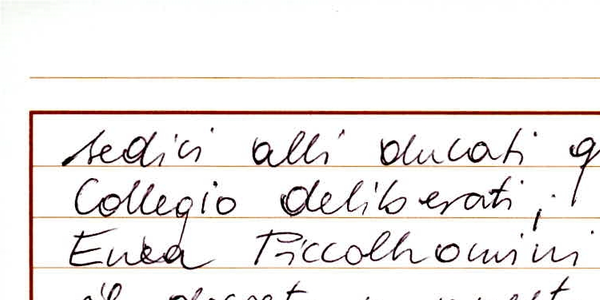 sedici alli ducati q
Collegio deliberati;
Enea Piccolhomini